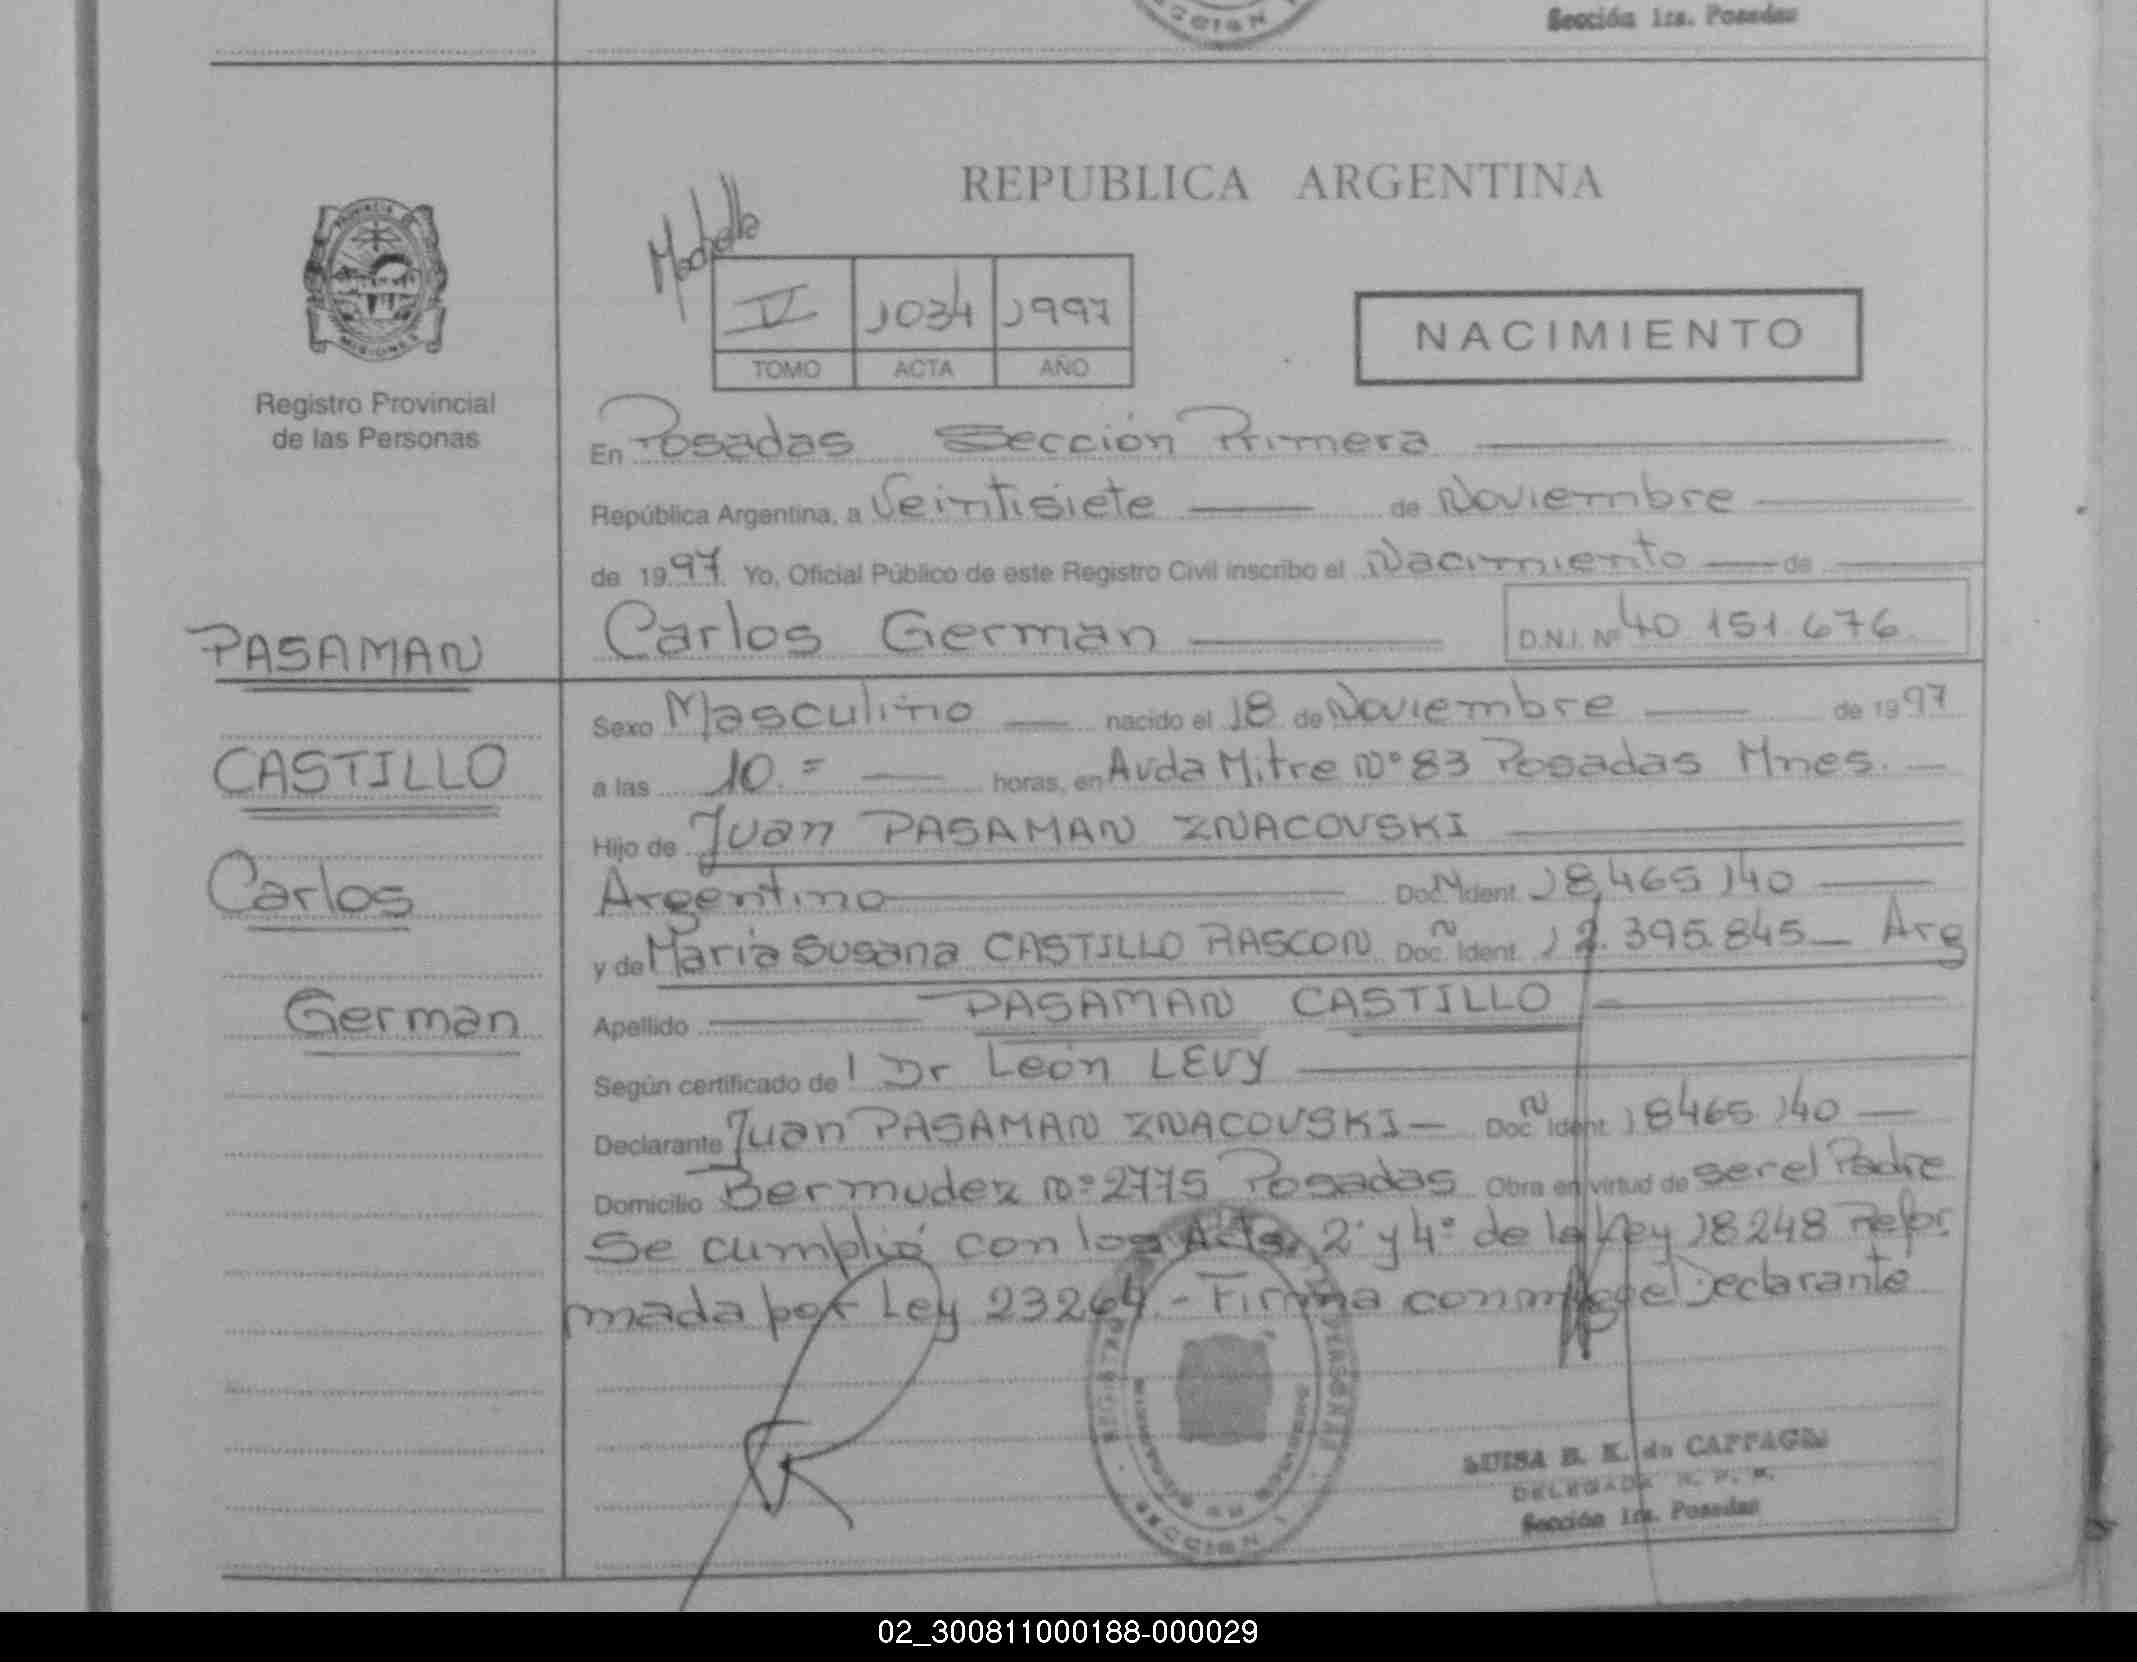 CCION
Sección 1ra. Posadas
REPUBLICA ARGENTINA
PROVINCIA
MISIONES
Registro Provincial
de las Personas
V 1034 1997
TOMO ACTA AÑO
NACIMIENTO
En Posadas Sección Primera
República Argentina, a Veintisiete de Noviembre
de 1997 Yo, Oficial Público de este Registro Civil inscribo el Nacimiento de
Carlos German D.N.I. Nº 40 151 676
PASAMAN
CASTILLO
Carlos
German
Sexo Masculino nacido el 18 de Noviembre de 1997
a las 10.= horas, en Avda Mitre Nº 83 Posadas Mnes.
Hijo de Juan PASAMAN ZNACOVSKI
Argentino Doc. N Ident. 18.465 140
y de Maria Susana CASTILLO RASCON Doc. N Ident. 12.395.845 Arg
Apellido PASAMAN CASTILLO
Según certificado de l Dr León LEVY
Declarante Juan PASAMAN ZNACOVSKI Doc. N Ident. 18465.140
Domicilio Bermudez nº 2775 Posadas Obra en virtud de ser el Padre
Se cumplió con los Arts. 2º y 4º de la Ley 18248 Refor
mada por Ley 23264.- Firma conmigo el Declarante
SECCION 1
LUISA B. K. de
DELEGADA R. P. P.
Sección 1ra. Posadas
02_300811000188-000029